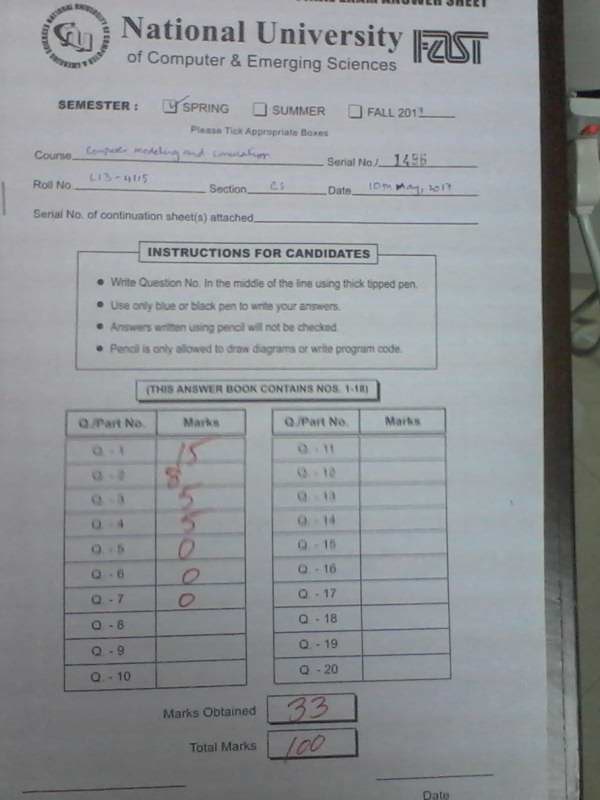 National University
of Computer & Emerging Sciences
FAST
SEMESTER : SPRING SUMMER FALL 201
Please Tick Appropriate Boxes
Course Computer modeling and simulation Serial No. 1496
Roll No L13-4115 Section CS Date 10th May, 2017
Serial No. of continuation sheet(s) attached
INSTRUCTIONS FOR CANDIDATES
• Write Question No. In the middle of the line using thick tipped pen.
• Use only blue or black pen to write your answers.
• Answers written using pencil will not be checked.
• Pencil is only allowed to draw diagrams or write program code.
(THIS ANSWER BOOK CONTAINS NOS. 1-18)
Q./Part No. Marks Q./Part No. Marks
Q. - 1 15 Q. - 11
Q. - 2 8 Q. - 12
Q. - 3 5 Q. - 13
Q. - 4 5 Q. - 14
Q. - 5 0 Q. - 15
Q. - 6 0 Q. - 16
Q. - 7 0 Q. - 17
Q. - 8 Q. - 18
Q. - 9 Q. - 19
Q. - 10 Q. - 20
Marks Obtained 33
Total Marks 100
Date